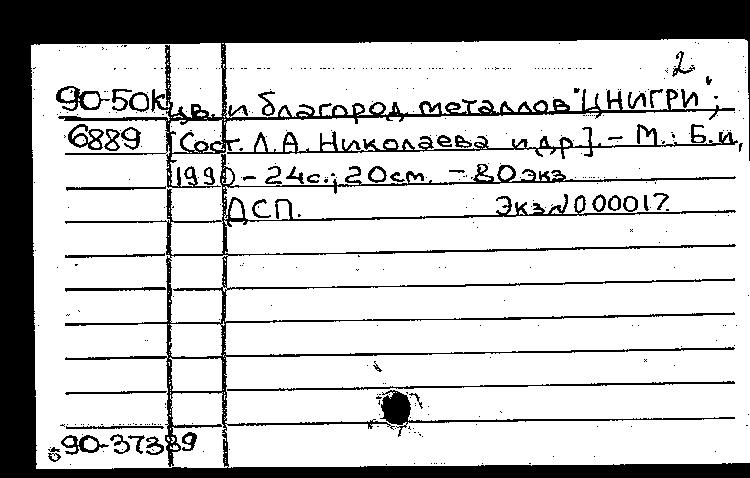 2
90-50к цв. и благород, металлов "ЦНИГРИ";
6889 [Сост. Л.А. Николаева и др]. - М.: Б.и,
1990 - 24с.; 20см. - 80экз
ДСП. Экз.№000017
б90-37389